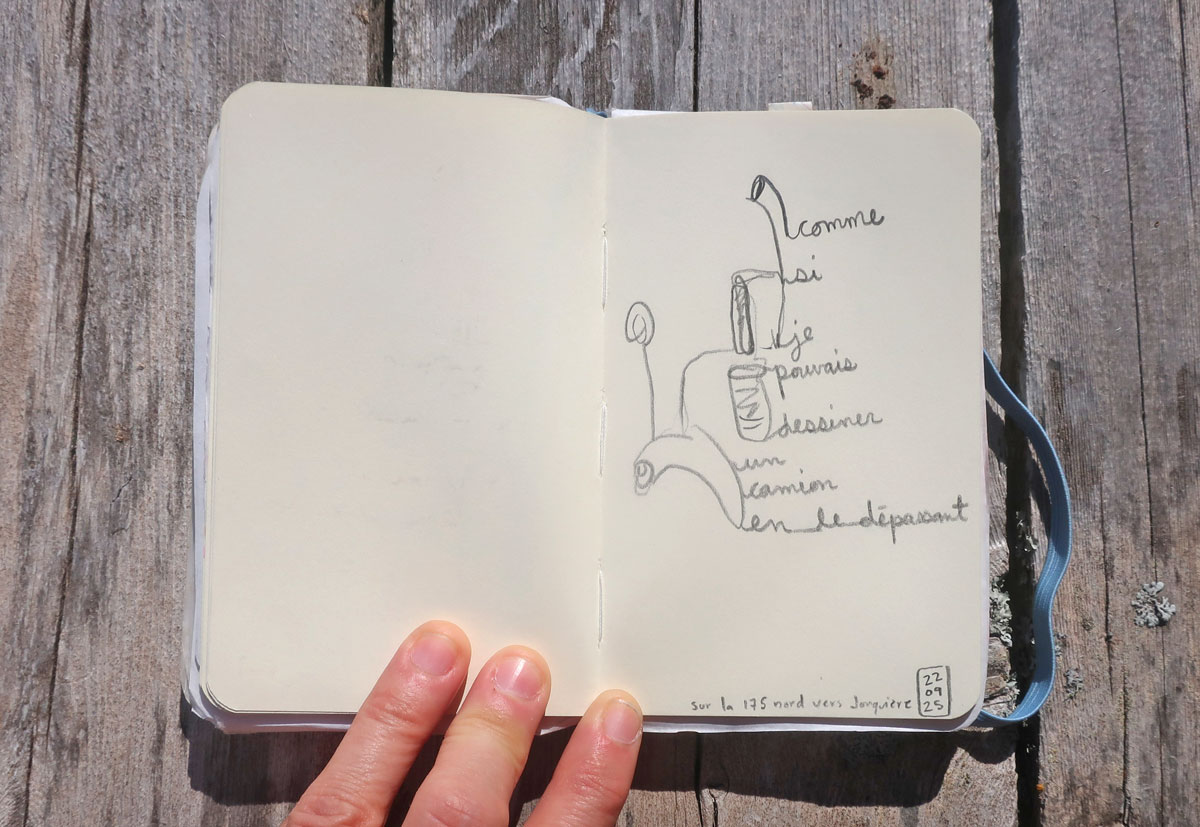 comme
si
je
pouvais
dessiner
un
camion
en le dépassant
sur la 175 nord vers Jonquière
22
09
25